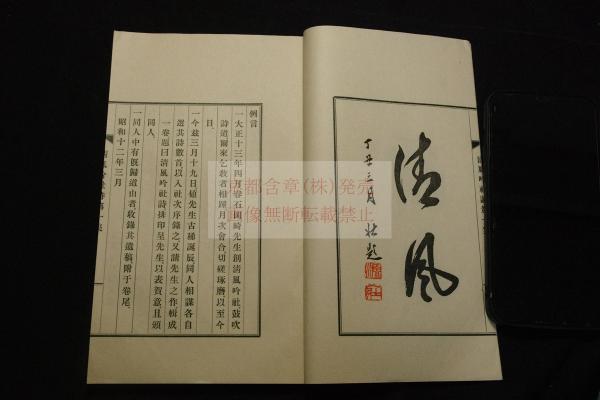 清風
丁丑三月 壮題
例言
一大正十三年四月卷石岡崎先生創清風吟社鼓吹
詩道爾來乞教者相踵月次會合切磋琢磨以至今
日
一今茲三月十九日値先生古稀誕辰同人相謀各自
選其詩數首以入社次序錄之又請先生之作輯成
一卷題曰清風吟社詩排印呈先生以表賀意且頒
同人
一同人中有既歸道山者收錄其遺稿附于卷尾
昭和十二年三月
京都含章(株)発売
画像無断転載禁止